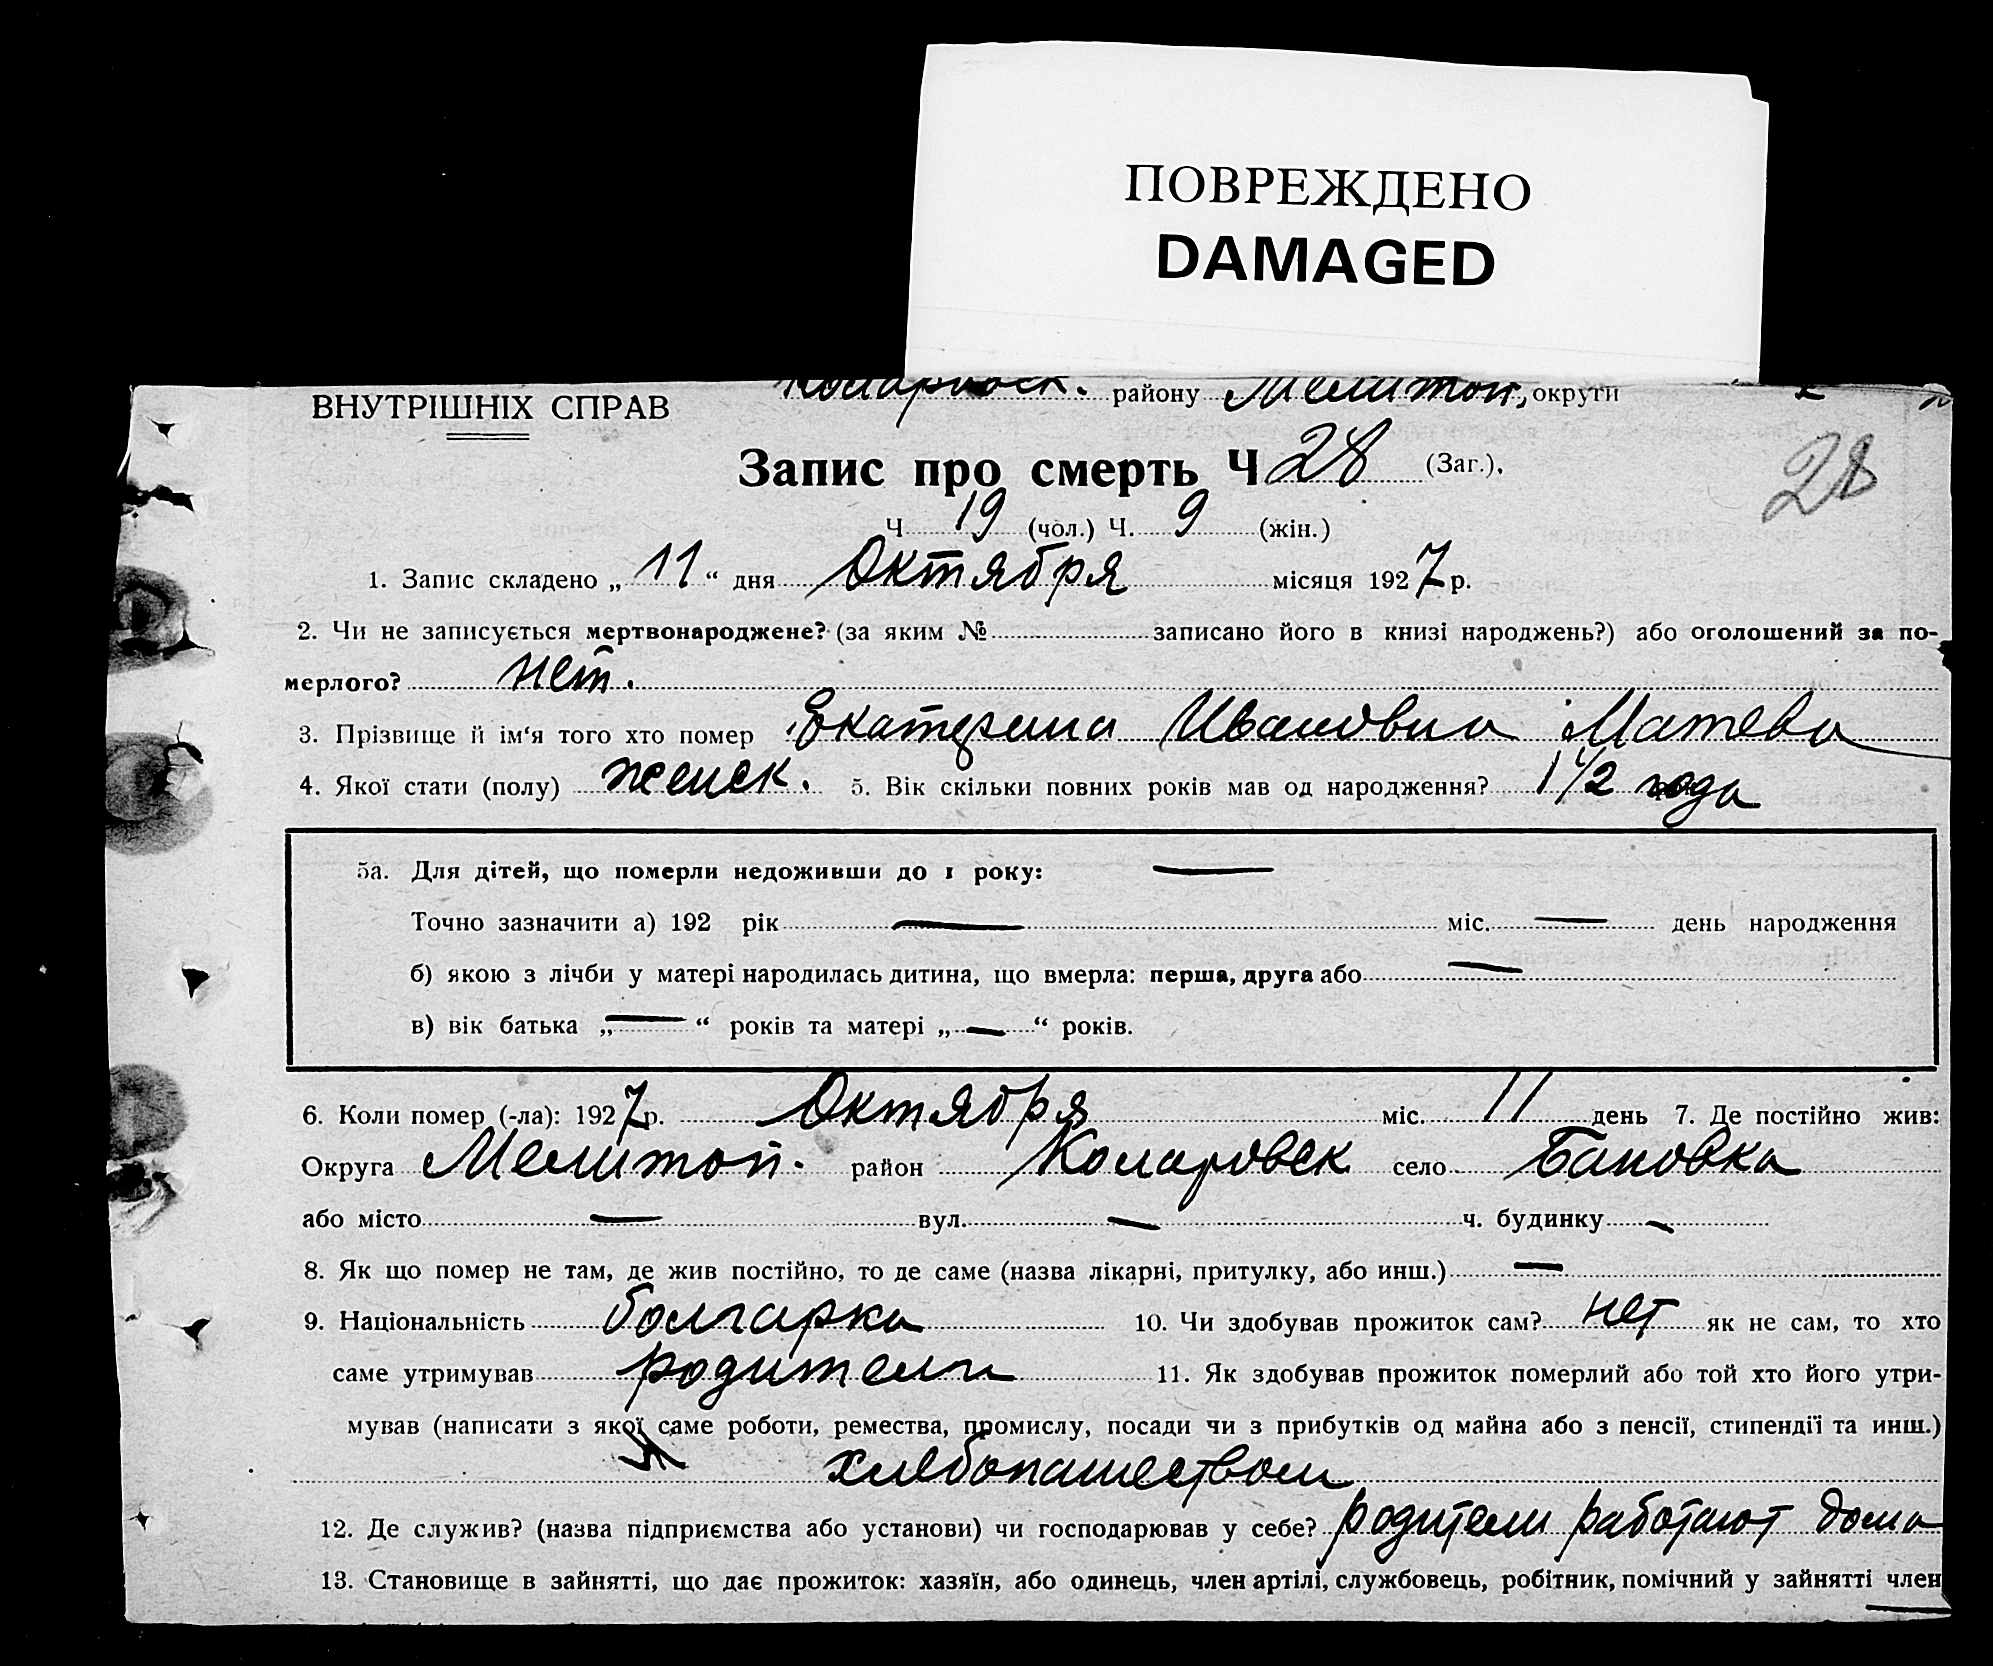 ПОВРЕЖДЕНО
DAMAGED
ВНУТРІШНІХ СПРАВ
Коларовск. району Мелитоп. округи
Запис про смерть Ч 28 (Заг.).
28
Ч 19 (чол.) Ч. 9 (жін.)
1. Запис складено „11“ дня Октября місяця 1927 р.
2. Чи не записується мертвонароджене? (за яким № записано його в книзі народжень?) або оголошений за по-
мерлого? нет.
3. Прізвище й ім‘я того хто помер Екатерина Ивановна Матева
4. Якої стати (полу) женск. 5. Вік скільки повних років мав од народження? 1 1/2 года
5а. Для дітей, що померли недоживши до 1 року: —
Точно зазначити а) 192 рік — міс. — день народження
б) якою з лічби у матері народилась дитина, що вмерла: перша, друга або —
в) вік батька „—“ років та матері „—“ років.
6. Коли помер (-ла): 1927 р. Октября міс. 11 день 7. Де постійно жив:
Округа Мелитоп. район Коларовск село Бановка
або місто — вул. — ч. будинку —
8. Як що помер не там, де жив постійно, то де саме (назва лікарні, притулку, або инш.) —
9. Національність болгарка 10. Чи здобував прожиток сам? нет як не сам, то хто
саме утримував родители 11. Як здобував прожиток померлий або той хто його утри-
мував (написати з якої саме роботи, ремества, промислу, посади чи з прибутків од майна або з пенсії, стипендії та инш.)
хлебопашеством
12. Де служив? (назва підприємства або установи) чи господарював у себе? родители работают дома
13. Становище в зайнятті, що дає прожиток: хазяїн, або одинець, член артілі, службовець, робітник, помічний у зайнятті член